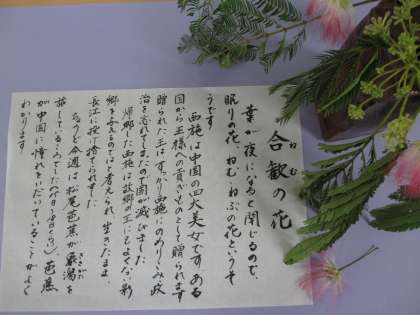 合歓の花
ねむ
葉が夜になると閉じるので、
眠りの花、ねむ、ねぶの花というそ
うです
西施は中国の四大美人です、ある
国から王様への貢ぎものとして贈られます
贈られた王はすっかり西施にのめりこみ政
治を忘れてしまったので国が滅びました
帰郷した西施は故郷の王にもよくない影
響を与えるのではと考えられ、生きたまま、
長江に投げ捨てられました
ちょうど今週は松尾芭蕉が象潟を
きさかた
旅している
芭蕉
が中国に憧れをいだいていることがよく
わかります